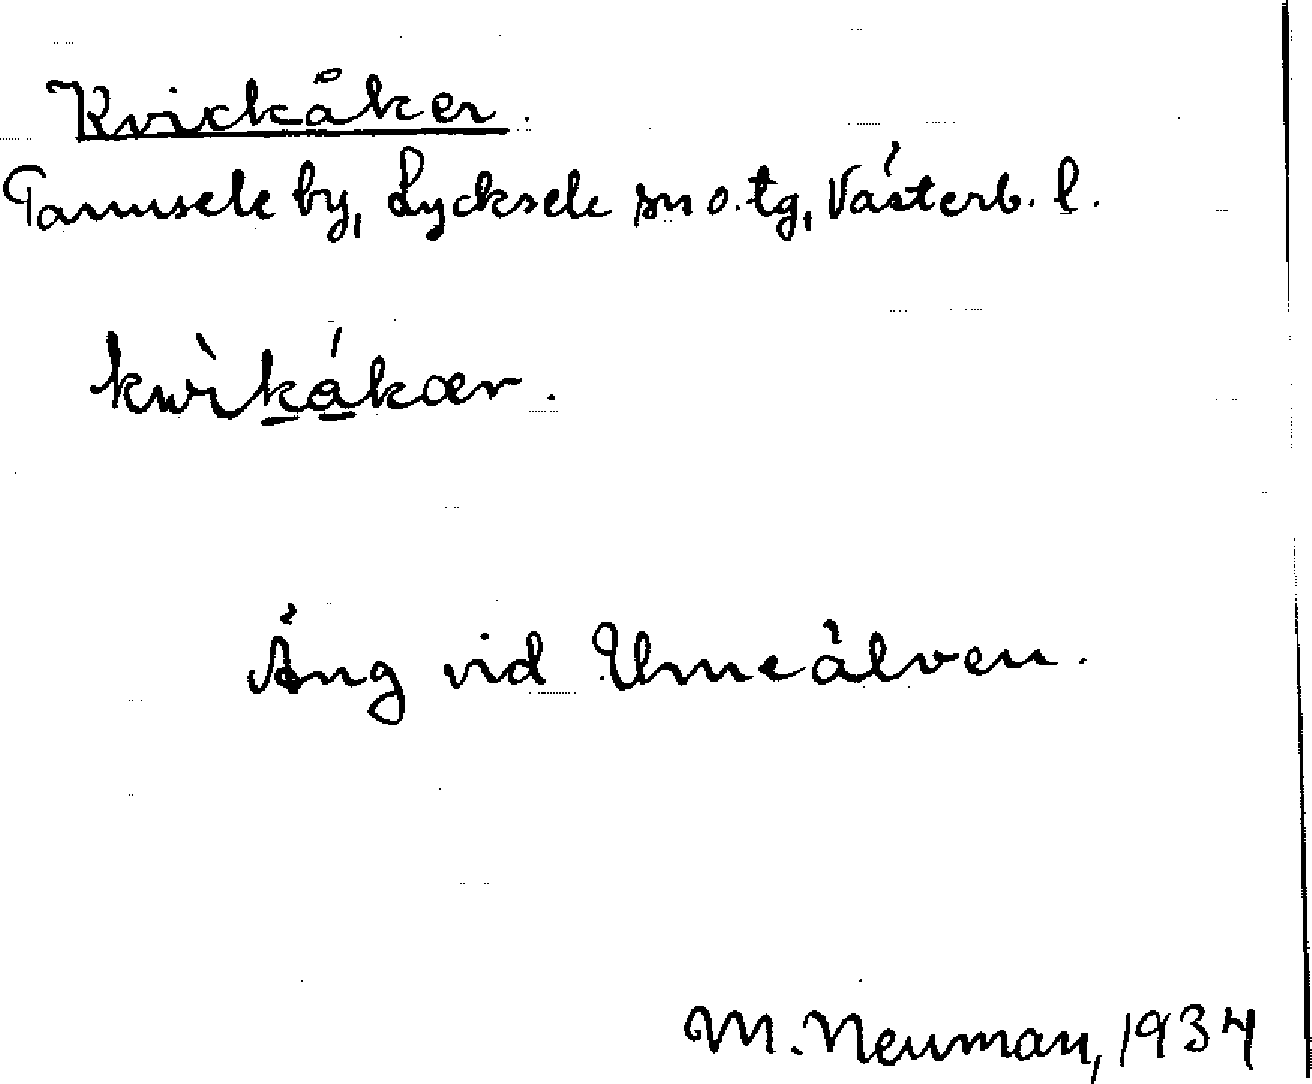 Kvickåker.
Tannsele by, Lycksele sn o. tg, Västerb. l.
kwìkákær.
Äng vid Umeälven.
M. Neuman, 1934